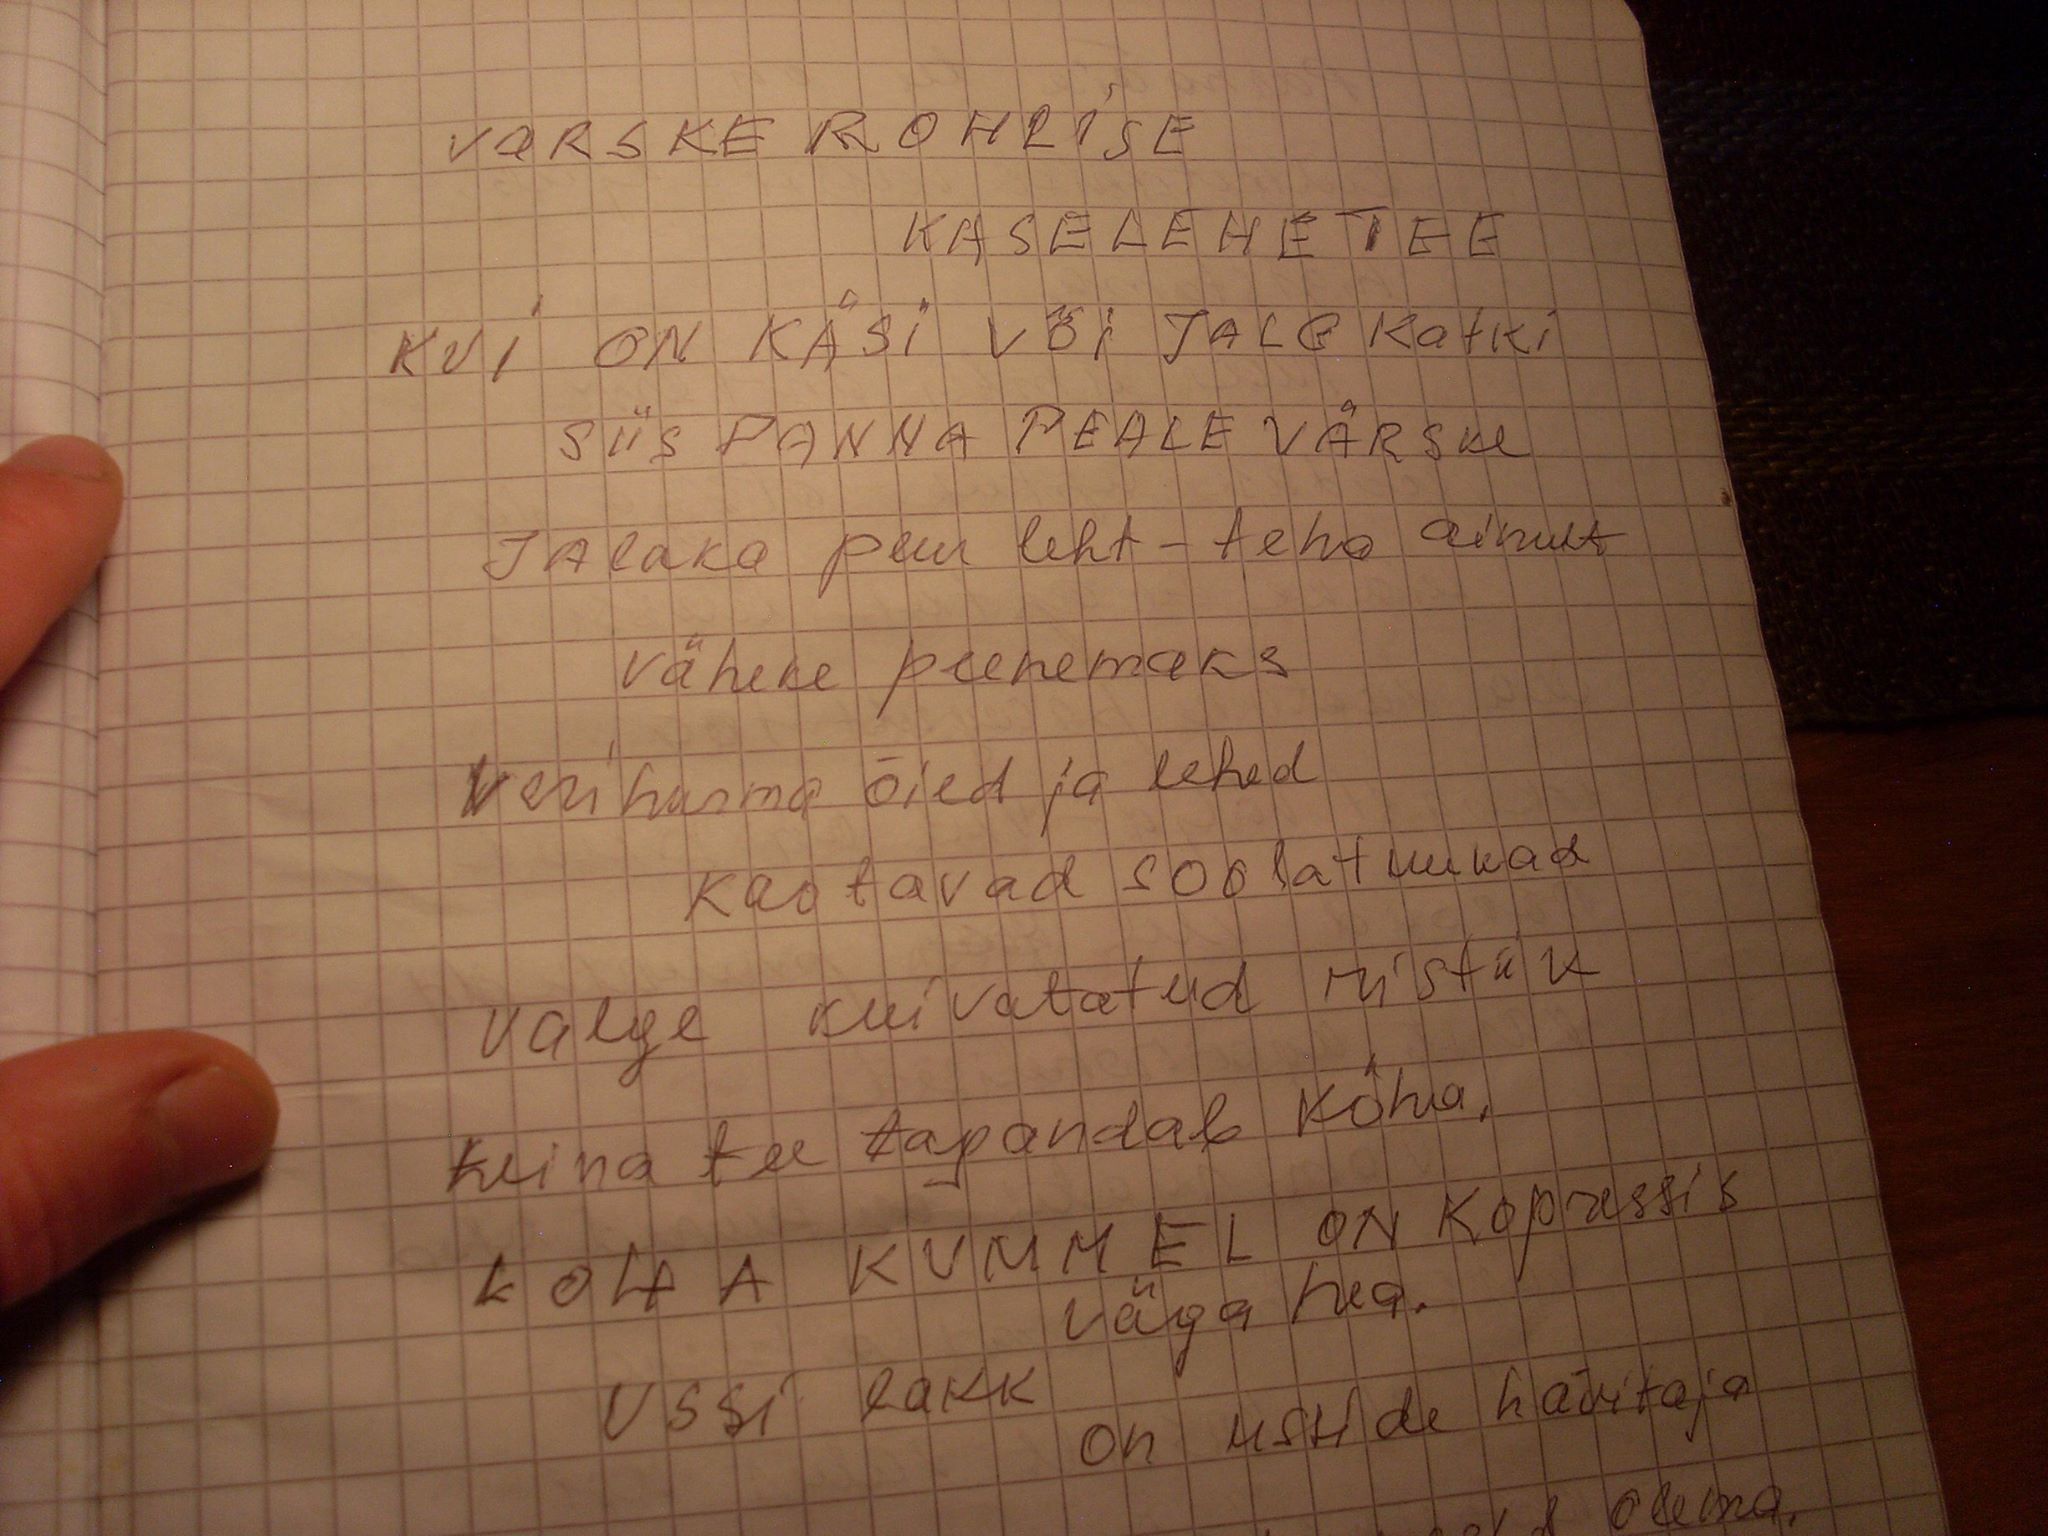 VARSKE ROHLISE
KASELEHETEE
KUI ON KÄSI VÕI JALG KatKi
SIIS PANNA PEALE VÄRSKE
JALaKa puu leht - teha ainult
väheke peenemaks
Verihurma õied ja lehed
Kaotavad soolatuukad
valge kuivatatud ristik
heina tee tapandab köha.
LOHA KUMMEL ON Kopressis
väga hea.
USSi lakk
on usside hävitaja
olema.